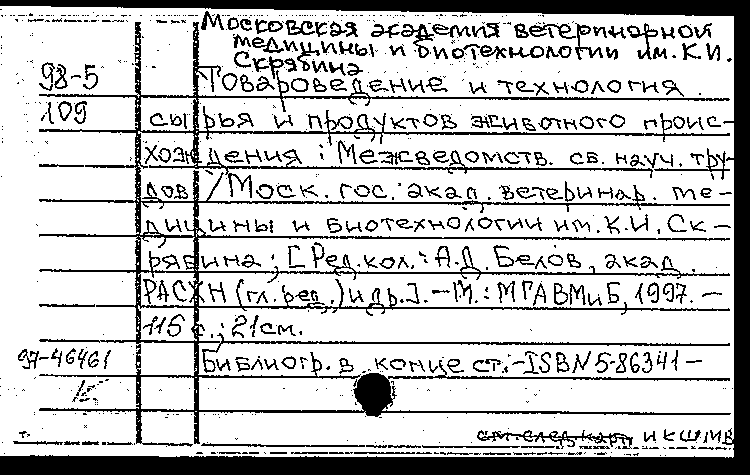 Московская академия ветеринарной
медицины и биотехнологии им. К.И.
Скрябина
98-5 Товароведение и технология
109 сырья и продуктов животного проис-
хождения : Межведомств. сб. науч. тру-
дов / Моск. гос. акад. ветеринар. ме-
дицины и биотехнологии им. К.И. Ск-
рябина ; [Ред. кол. : А.Д. Белов, акад.
РАСХН (гл. ред.) и др.]. - М. : МГАВМиБ, 1997. -
115 с. ; 21 см.
97-46461 Библиогр. в конце ст. - ISBN 5-86341-
т. см. след. карт. ИКШМВ